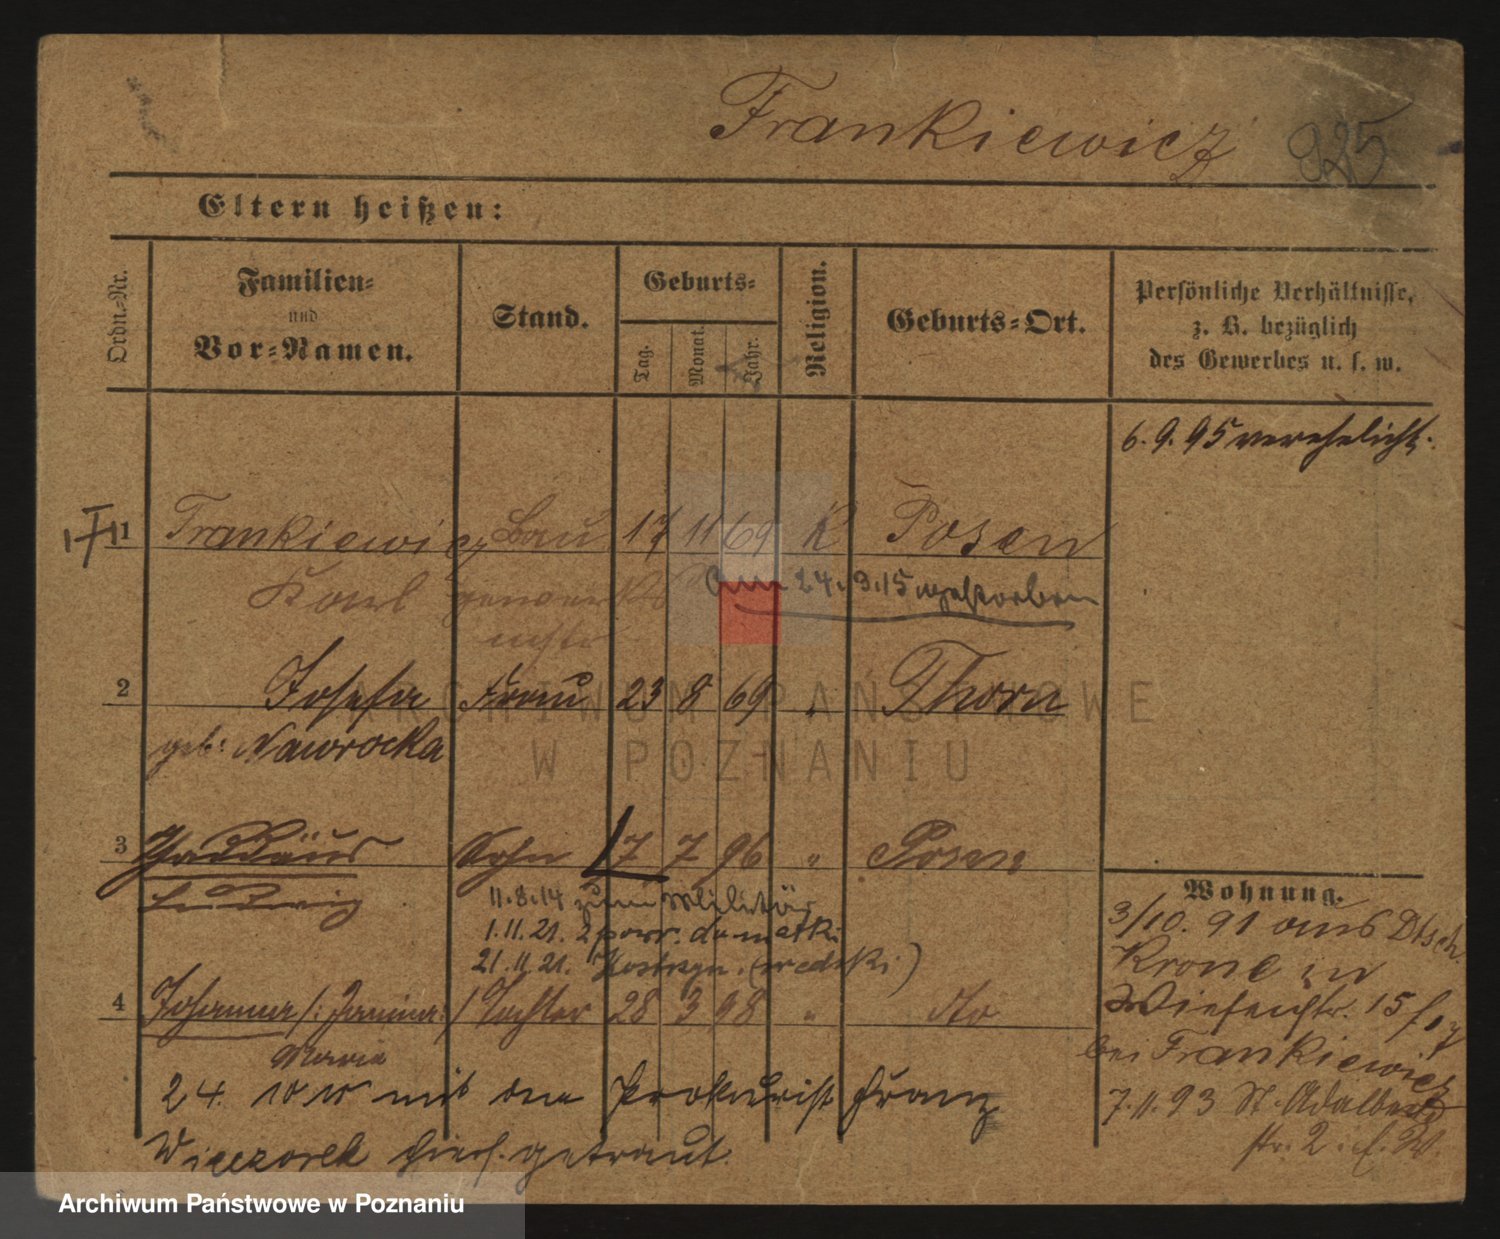 Frankiewicz 925
Eltern heißen:
Ordn.-Nr.
Familien-
und
Vor-Namen.
Stand.
Geburts-
Tag.
Monat.
Jahr.
Religion.
Geburts-Ort.
Persönliche Verhältnisse,
z. B. bezüglich
des Gewerbes u. s. w.
6. 9. 95 verehelicht.
1 Frankiewicz Bau 17 11 69 K Posen
Karl gewerks
am 24.9.15 gestorben
2 Josefa Frau 23 8 69 " Thorn
geb: Nawrocka
3 Thaddäus Sohn 7 7 96 " Posen
Ludwig
11.8.14 zum Militär
1.11.21.
21.11.21.
4 Johanna /: Janina :/ Tochter 28 3 98 " dto
Maria
24. 10 mit dem Prokurist Franz
Wieczorek hies. getraut.
Wohnung.
3/10. 91 aus Dtsch.
Krone in
Wiesenstr. 15
bei Frankiewicz
7.11.93 St. Adalbert
str. 2.
ARCHIWUM PAŃSTWOWE
W POZNANIU
Archiwum Państwowe w Poznaniu